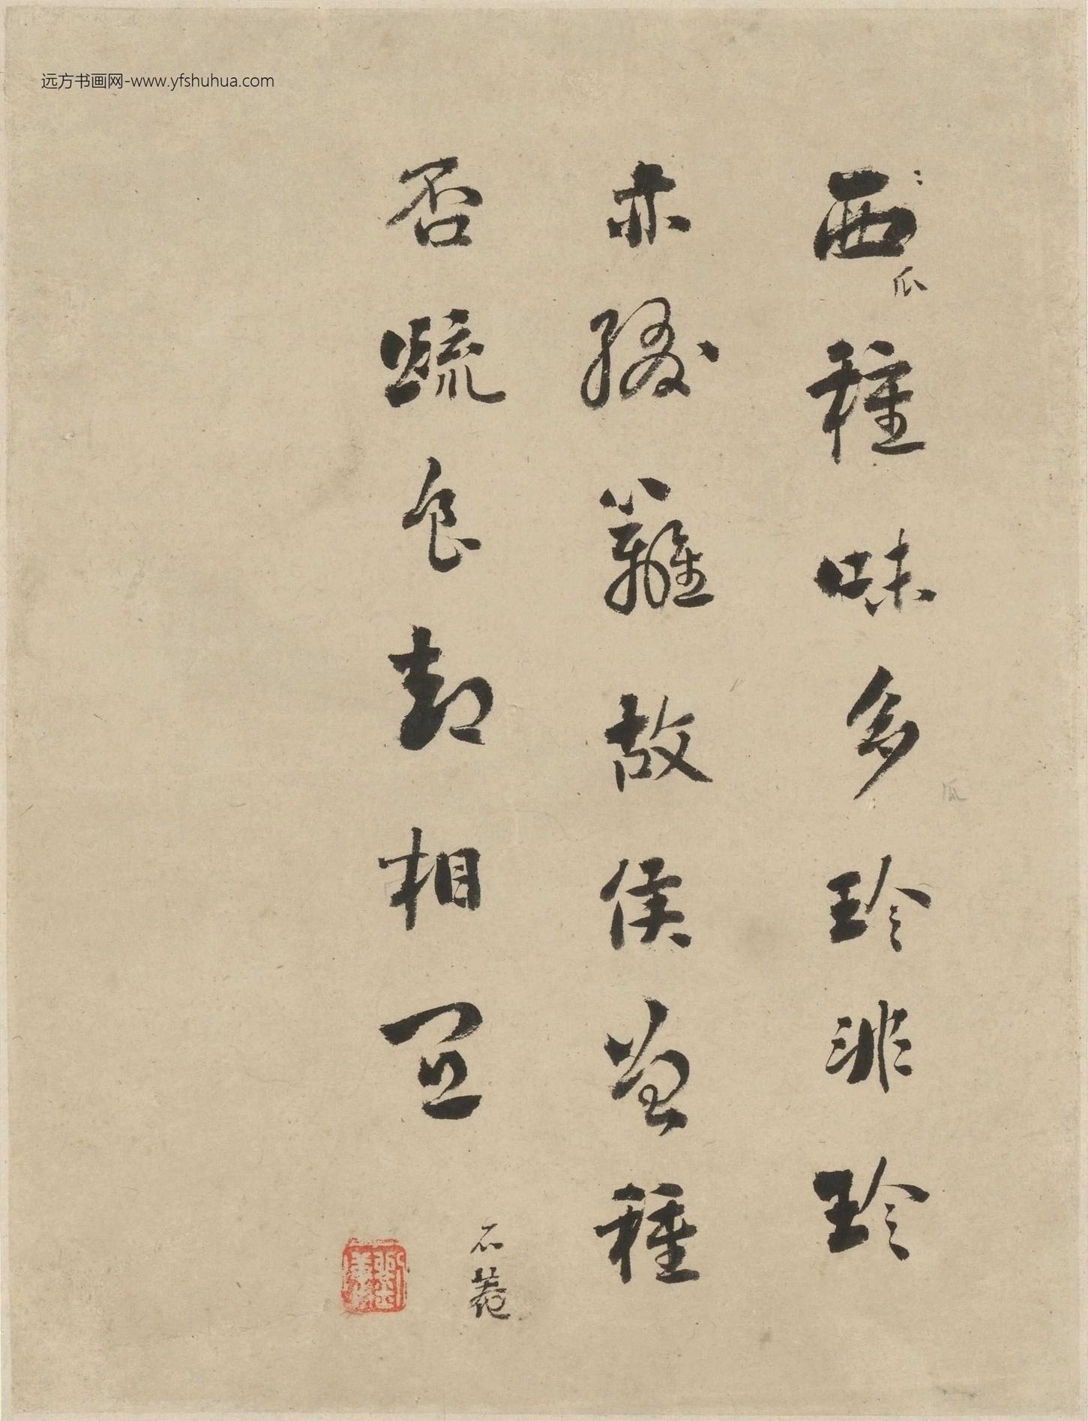 远方书画网-www.yfshuhua.com
西瓜種味多珍非珍
瓜
亦綴籬故侯曾種
否疏食却相宜
石菴